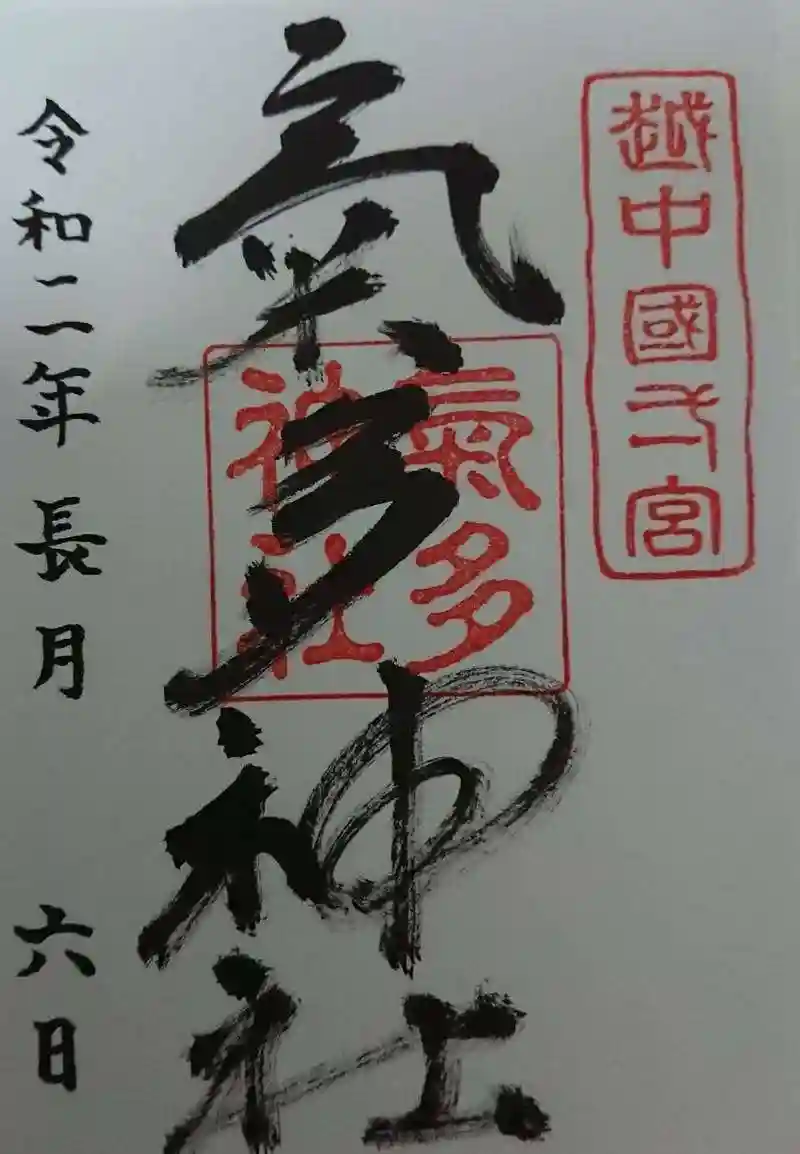 越中國一宮
氣多神社
氣多
神社
令和二年長月六日